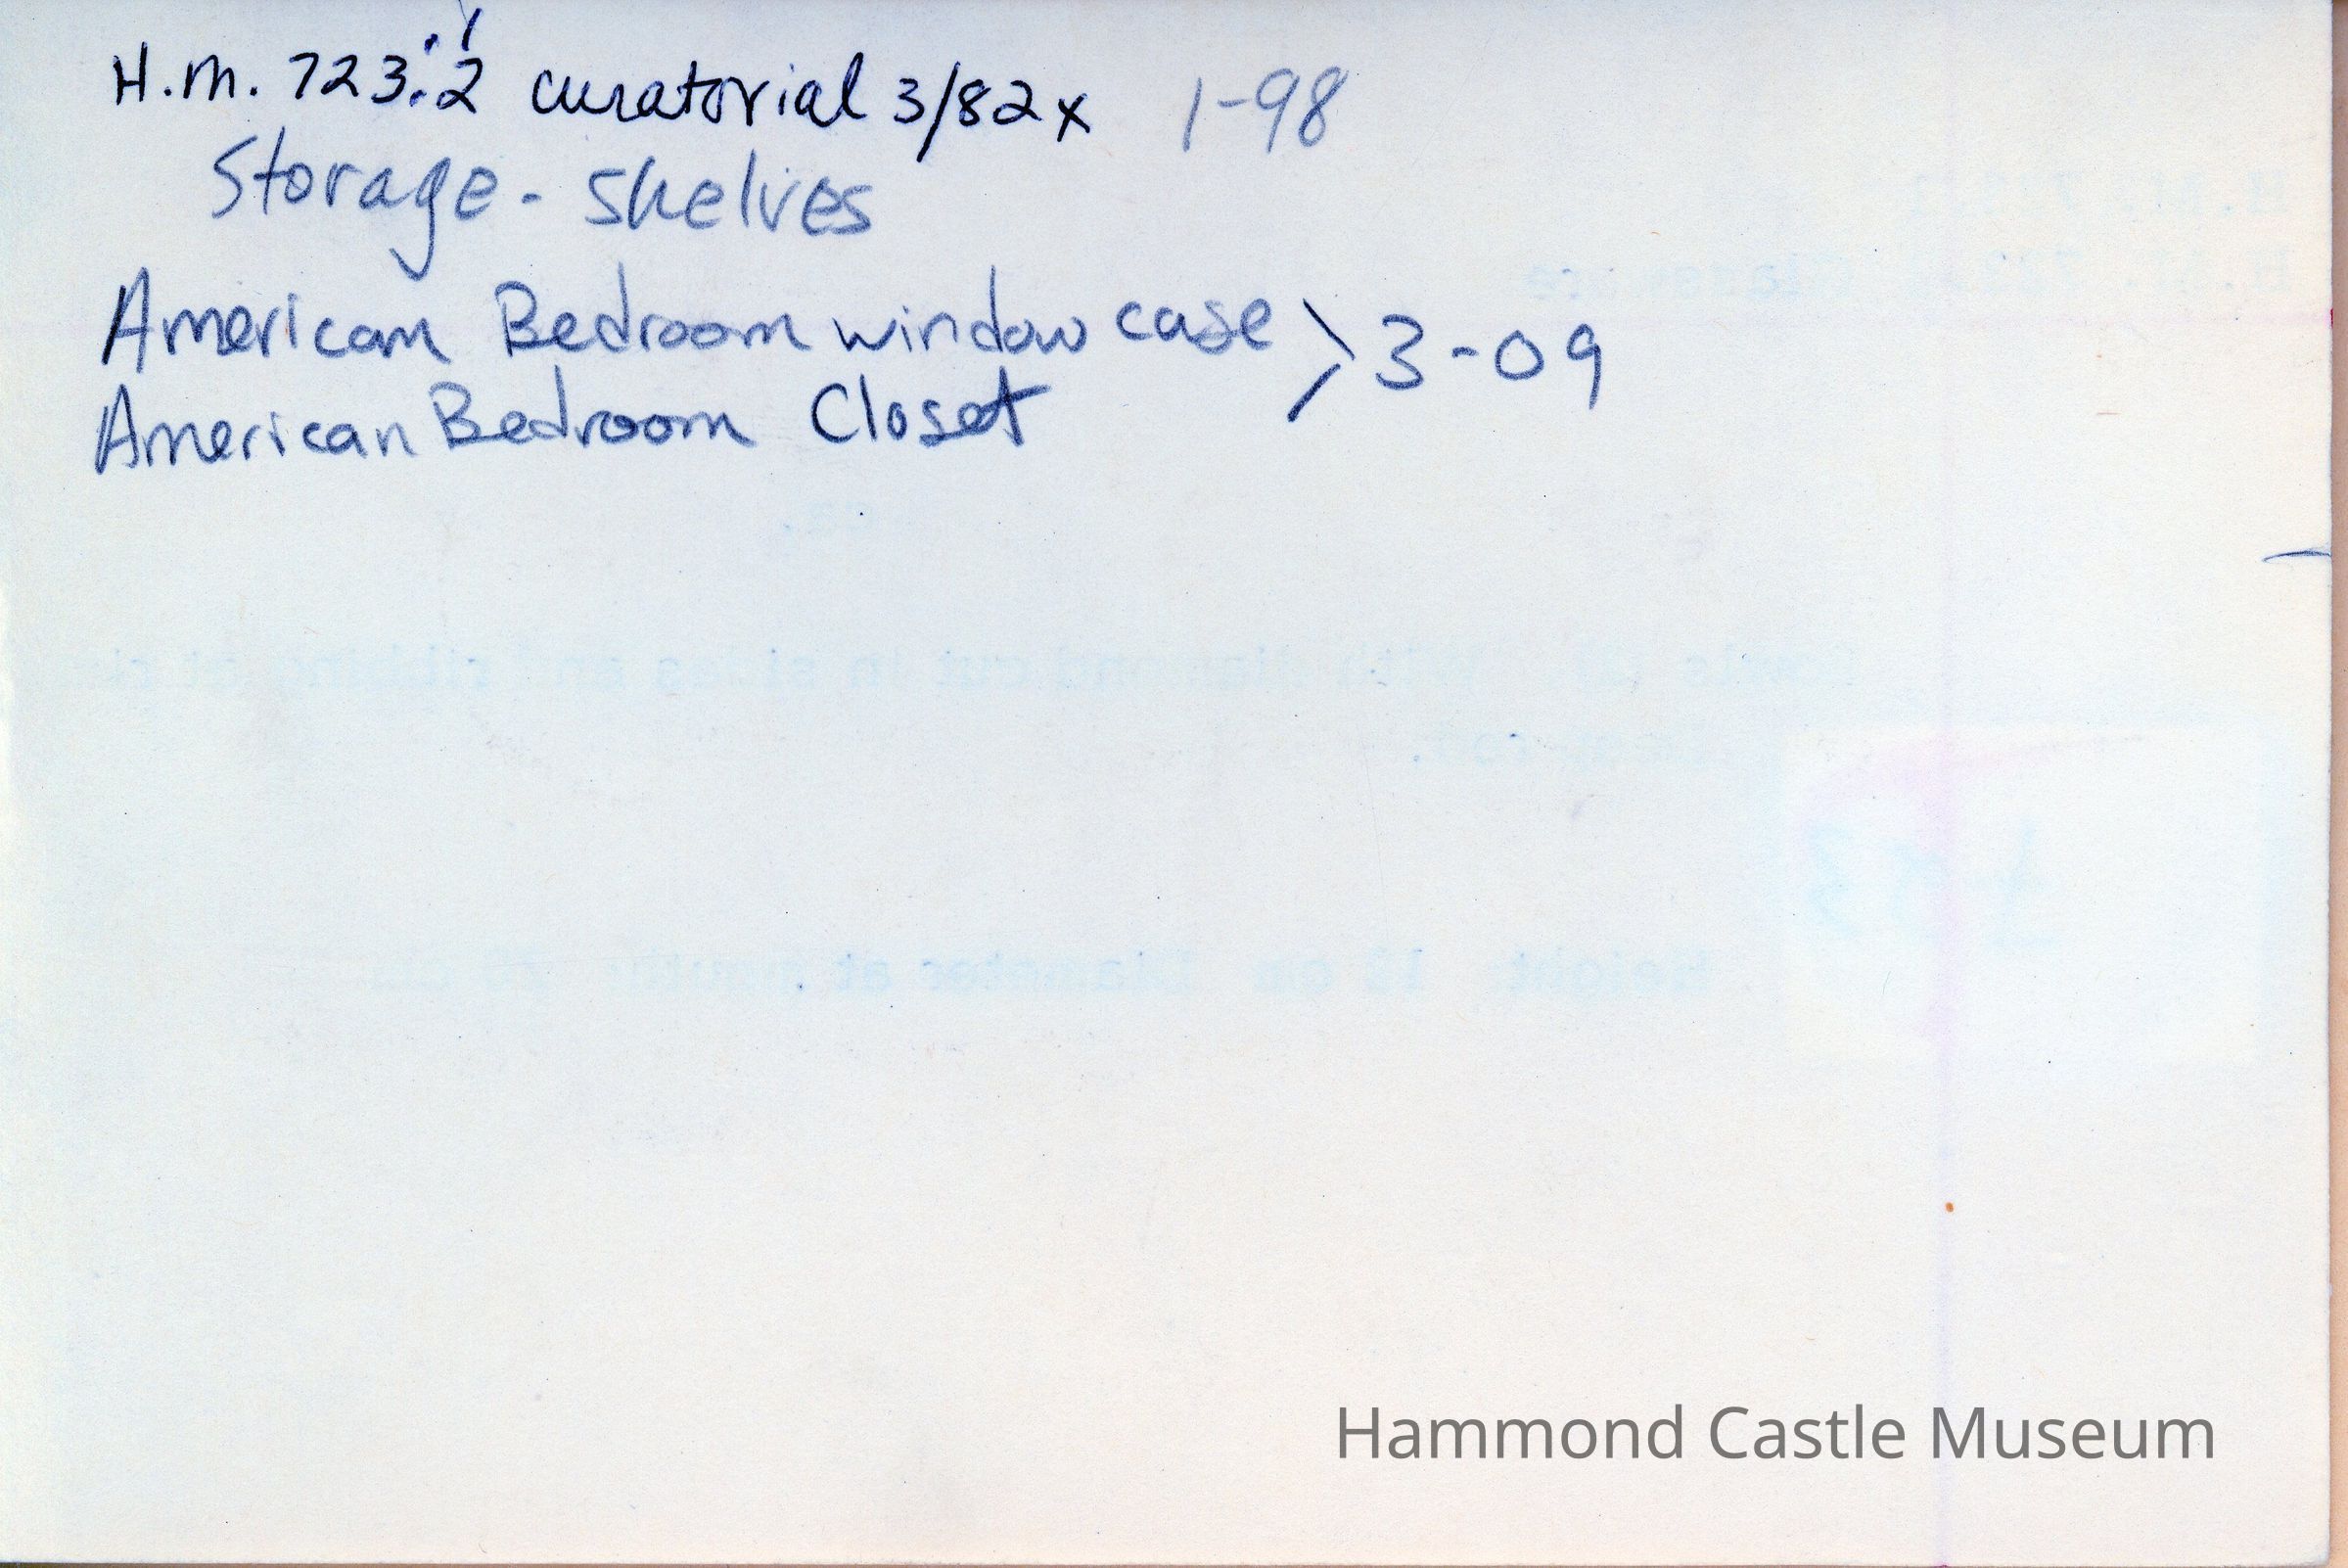 H.M. 723:.1 .2 curatorial 3/82x 1-98
Storage - shelves
American Bedroom window case > 3-09
American Bedroom Closet
Hammond Castle Museum